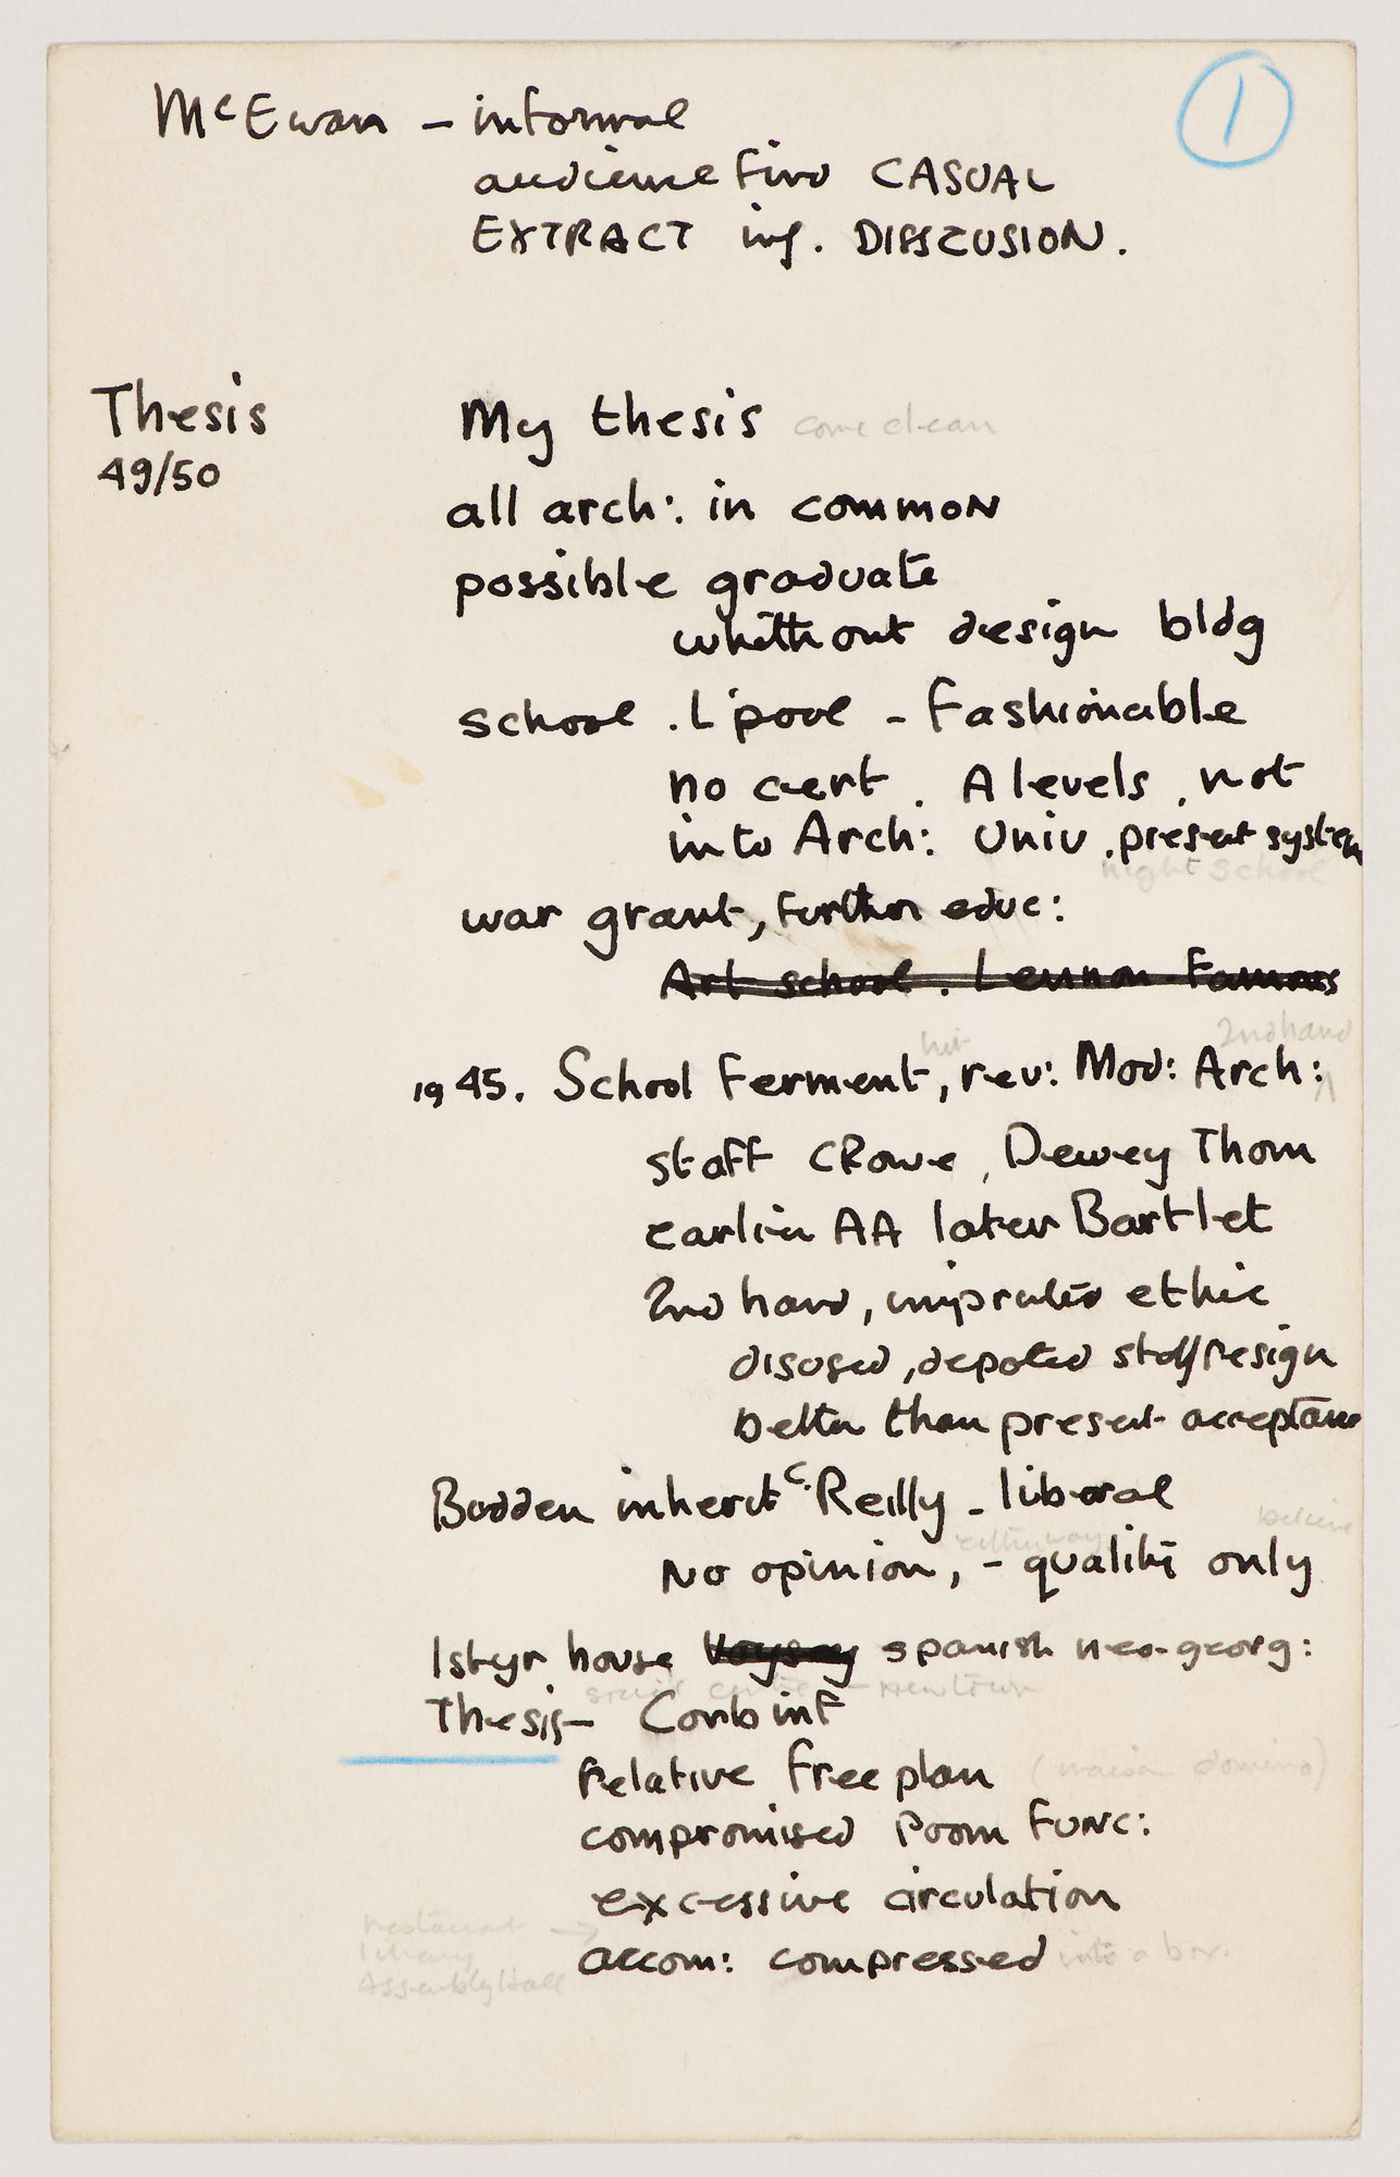 1
McEwan – informal
audience find CASUAL
EXTRACT inf. DISSCUSION.
Thesis
49/50
My thesis come clean
all arch: in common
possible graduate
whithout design bldg
school . L'pool – Fashionable
no cert . A levels . not
into Arch: Univ . present system
night school
war grant, further educ:
Art school . Lennon Famous
hit 2nd hand
1945. School Ferment, rev: Mod: Arch:
staff CRowe , Dewey Thom
earlier AA later Bartlet
2nd hand, ethic
disused , staff resign
better than present acceptance
Budden inherit C. Reilly – liberal
either way believe
No opinion, – quality only
1st yr house Voysey spanish neo-georg:
centre – New town
Thesis – Corb inf
Relative free plan (maison domino)
compromised Room FUNC:
excessive circulation
restaurant →
library
Assembly Hall
accom: compressed into a box.